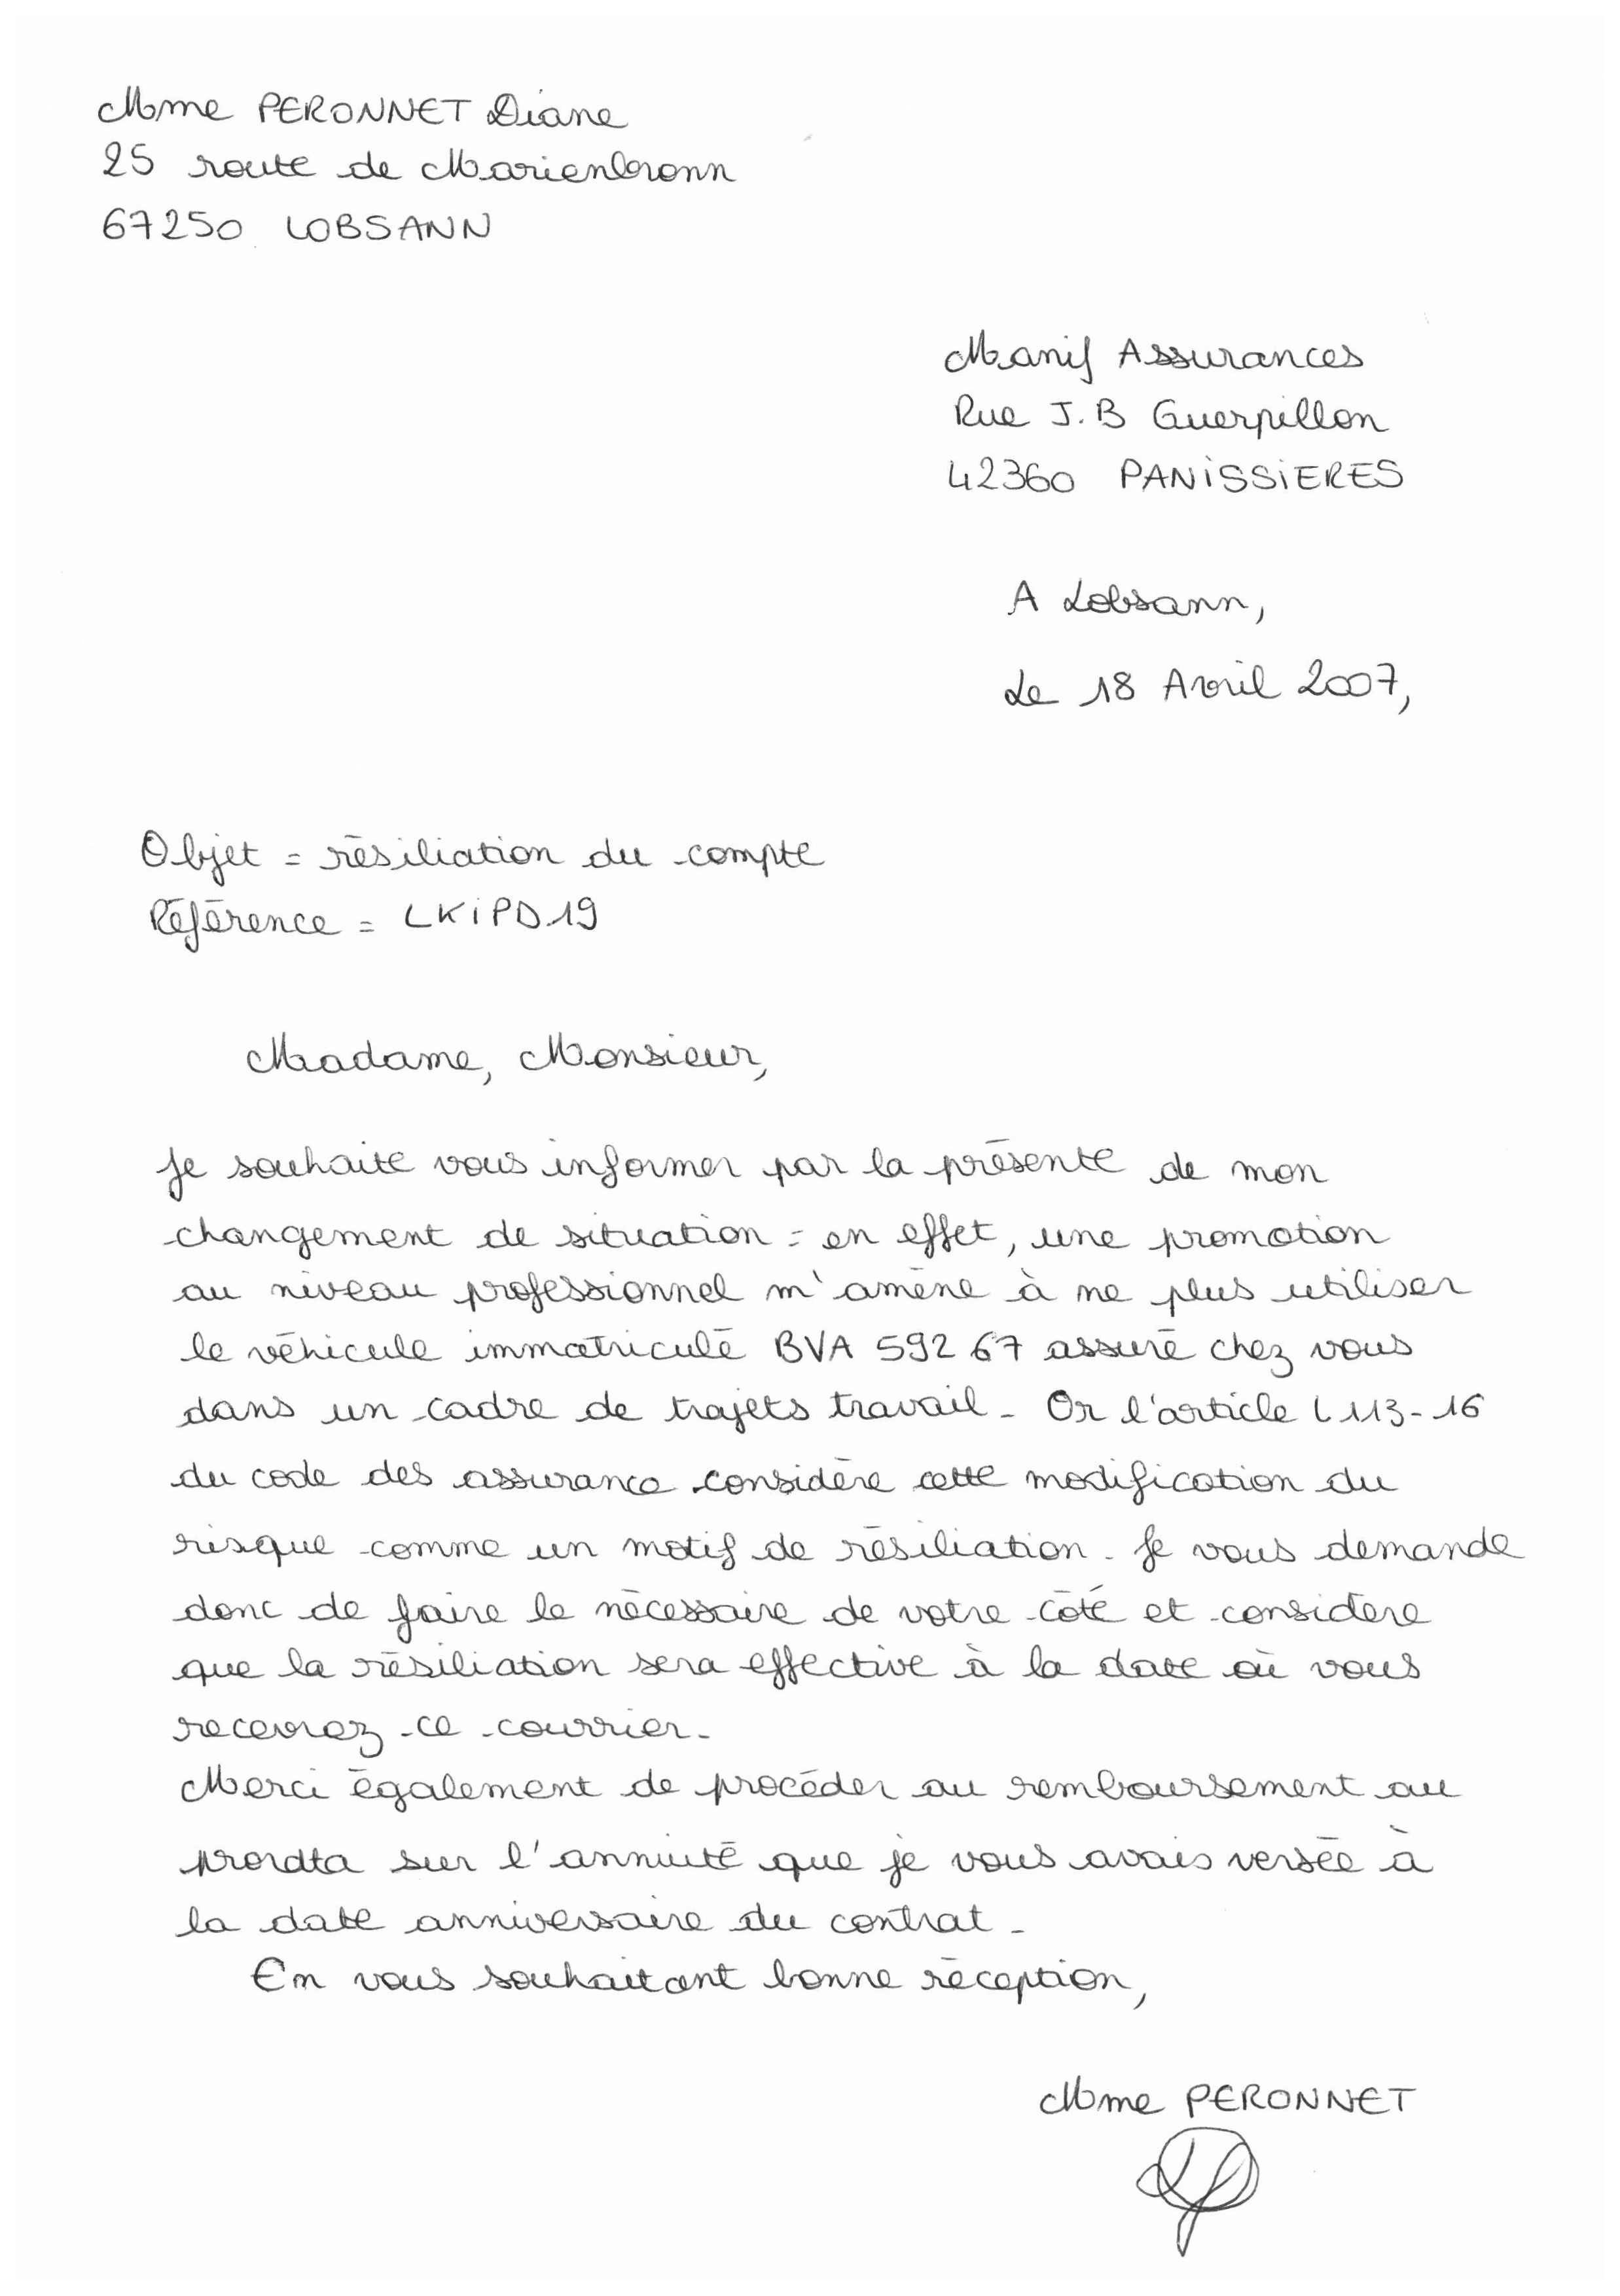 Mme PERONNET Diane
25 route de Marienbronn
67250 LOBSANN
Manif Assurances
Rue J.B Guerpillon
42360 PANISSIERES
A Lobsann,
Le 18 Avril 2007,
Objet = résiliation du compte
Référence = LKIPD19
Madame, Monsieur,
Je souhaite vous informer par la présente de mon
changement de situation = en effet, une promotion
au niveau professionnel m'amène à ne plus utiliser
le véhicule immatriculé BVA 592 67 assuré chez vous
dans un cadre de trajets travail. Or l'article L113-16
du code des assurance considère cette modification du
risque comme un motif de résiliation. Je vous demande
donc de faire le nécessaire de votre côté et considère
que la résiliation sera effective à la date où vous
recevrez ce courrier.
Merci également de procéder au remboursement au
prorata sur l'annuité que je vous avais versée à
la date anniversaire du contrat.
En vous souhaitant bonne réception,
Mme PERONNET